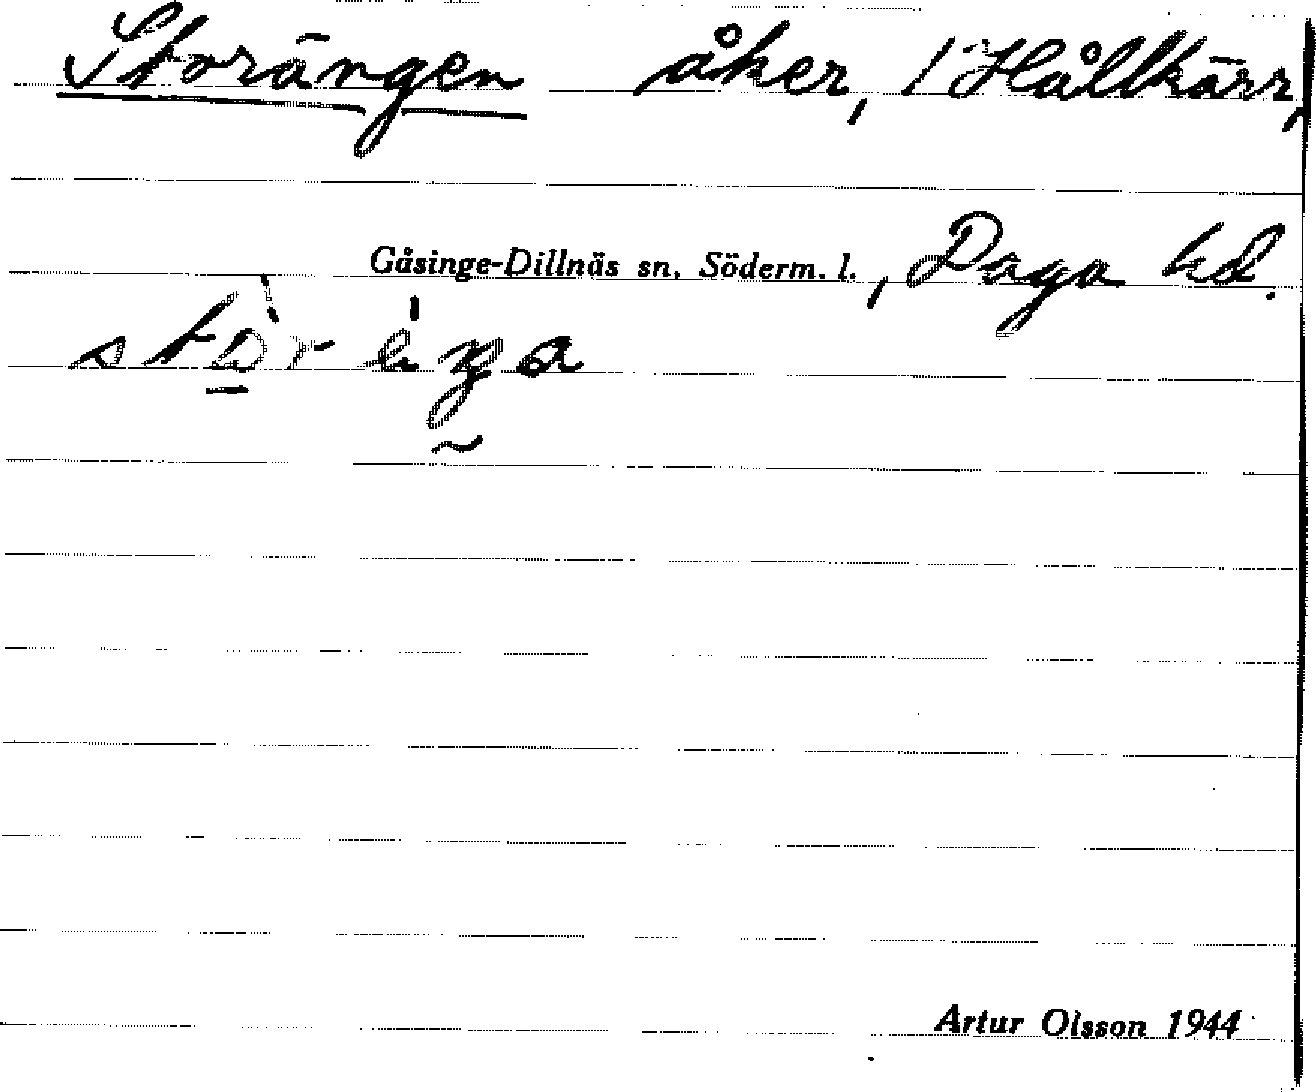 Storängen åker, / Hållkärr,
Gåsinge-Dillnäs sn, Söderm. l., Daga hd.
Artur Olsson 1944